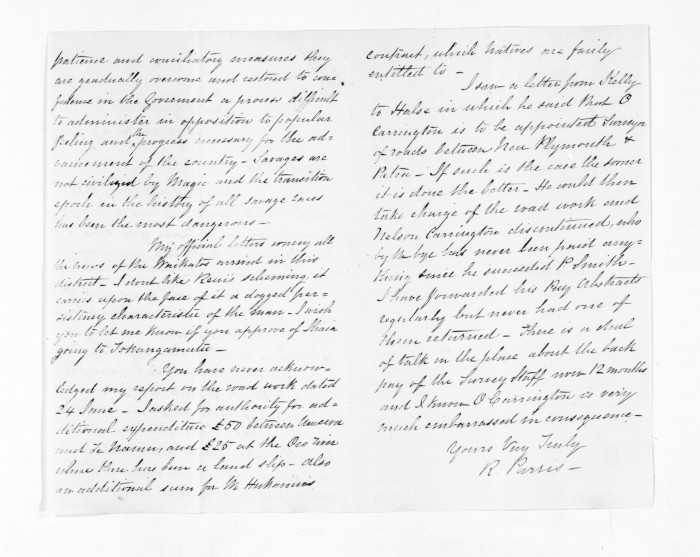 patience and conciliatory measures they
are gradually overcome and restored to con-
fidence in the Goverment a process difficult
to administer in opposition to popular
feeling and the progress necessary for the ad-
vancement of the country - Savages are
not civilized by Magic and the transition
epoch in the history of all savage races
has been the most dangerous -
My official letters convey all
the news of the Waikatos arrived in this
district - I dont like Rewi's scheming, it
carries upon the face of it a dogged per-
sistiney characteristic of the man - I wish
you to let me know if you approve of Ihaia
going to Tokangamutu -
You have never acknow-
ledged my report on the road work dated
24 June - I asked for authority for ad-
ditional expenditure £50 between Umuroa
and Te Namu, and £25 at the Oeo river
where there has been a land slip - also
an additional sum for W. Hukanuis
contract, which Natives are fairly
entitled to -
I saw a letter from Kelly
to Halse in which he said that O
Carrington is to be appointed Surveyor
of roads between New Plymouth &
Patea - If such is the case the sooner
it is done the better - He could then
take charge of the road work and
Nelson Carrington discontinued, who
by the bye has never been paid any-
thing since he succeeded P Smith -
I have forwarded his Pay Abstracts
regularly but never had one of
them returned - There is a deal
of talk in the place about the back
pay of the Survey Staff now 12 months
and I know O Carrington is very
much embarrassed in consequence -
Yours Very Truly
R Parris -